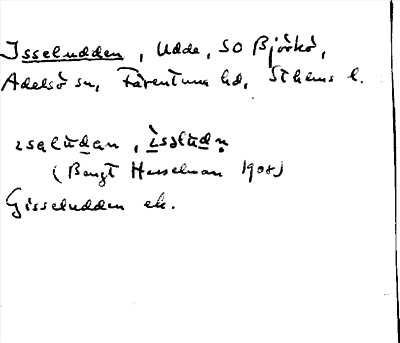 Isseludden, Udde, SO Björkö,
Adelsö sn, Färentuna hd, Sthlms l.
isəlùdan, ìsəlùdṇ
(Bengt Hesselman 1908)
Gisseludden ek.